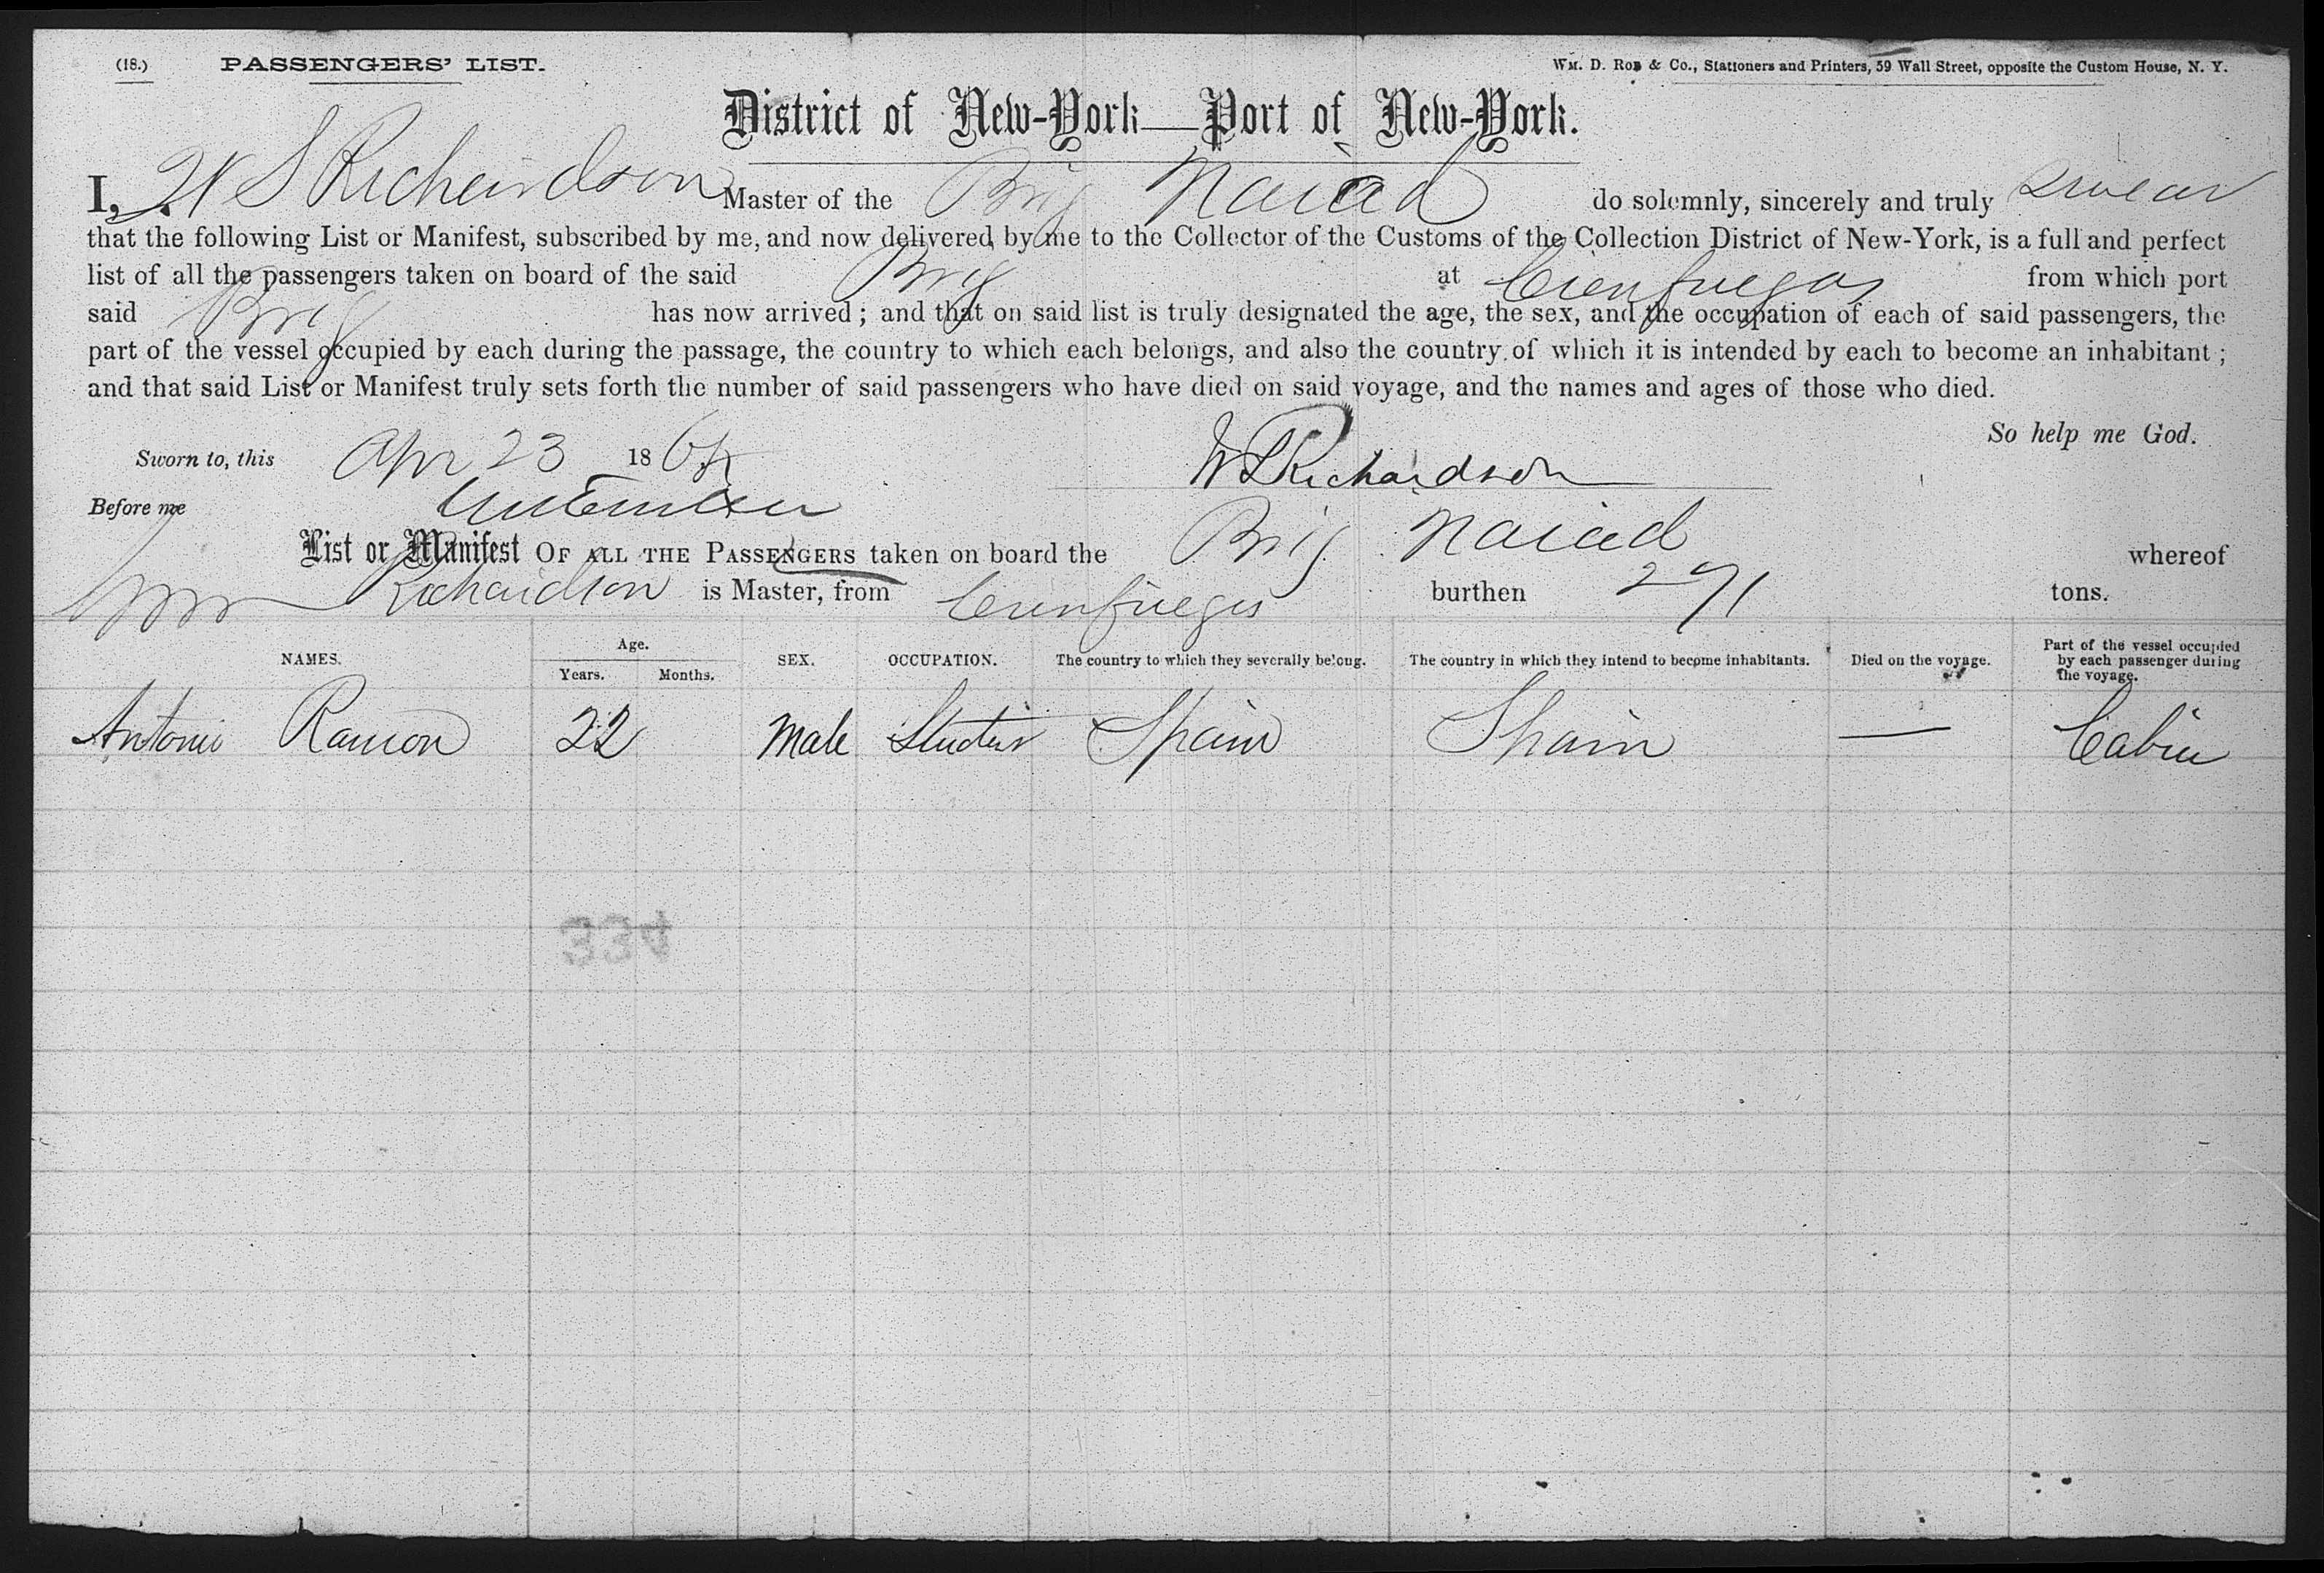 (18.) PASSENGERS' LIST. Wm. D. Roe & Co., Stationers and Printers, 59 Wall Street, opposite the Custom House, N. Y.
District of New-York—Port of New-York.
I, W S Richardson Master of the Brig Naiad do solemnly, sincerely and truly swear
that the following List or Manifest, subscribed by me, and now delivered by me to the Collector of the Customs of the Collection District of New-York, is a full and perfect
list of all the passengers taken on board of the said Brig at Cienfuegos from which port
said Brig has now arrived; and that on said list is truly designated the age, the sex, and the occupation of each of said passengers, the
part of the vessel occupied by each during the passage, the country to which each belongs, and also the country of which it is intended by each to become an inhabitant;
and that said List or Manifest truly sets forth the number of said passengers who have died on said voyage, and the names and ages of those who died.
So help me God.
Sworn to, this Apr 23 186 W S Richardson
Before me
List or Manifest OF ALL THE PASSENGERS taken on board the Brig Naiad whereof
Richardson is Master, from Cienfuegos burthen 271 tons.
NAMES. Age. Years. Months. SEX. OCCUPATION. The country to which they severally belong. The country in which they intend to become inhabitants. Died on the voyage. Part of the vessel occupied by each passenger during the voyage.
Antonio Ramon 22 Male Spain Spain — Cabin
334